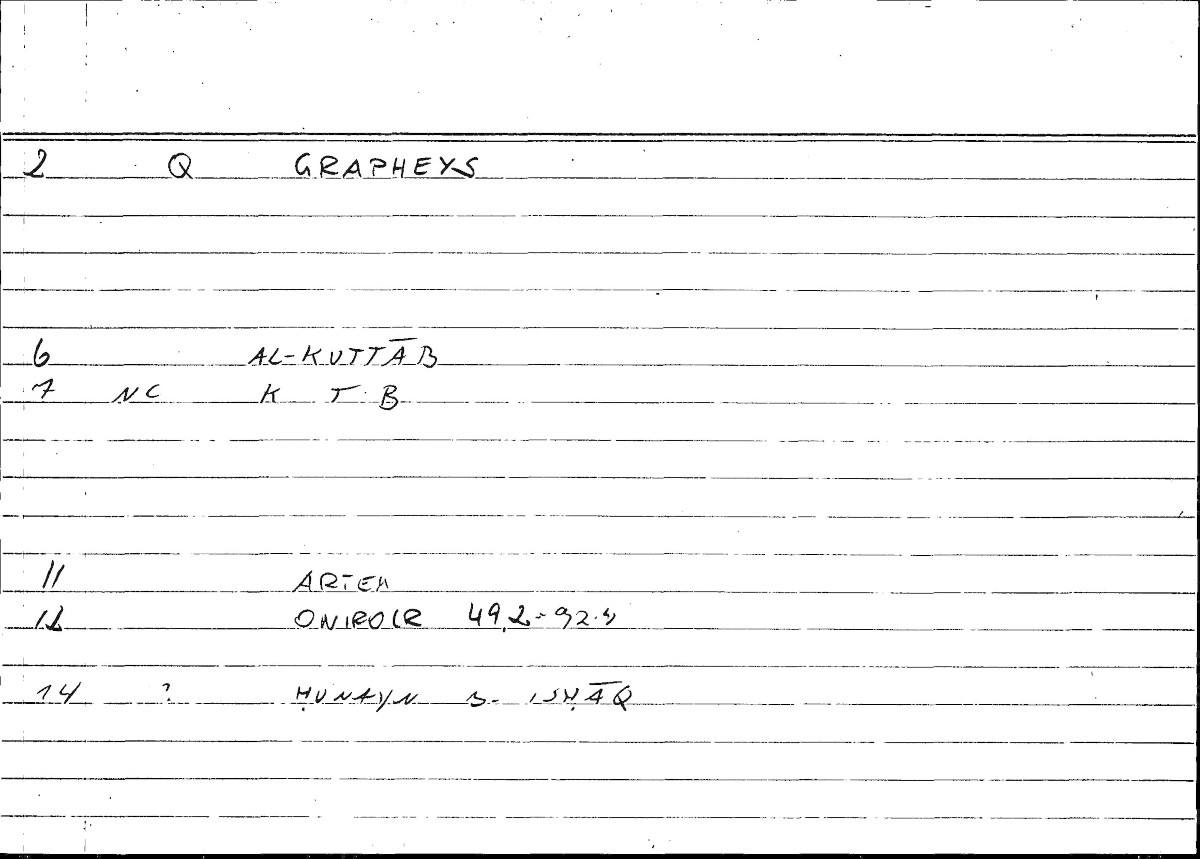 2 Q GRAPHEYS
6 AL-KUTTĀB
7 NC K T B
11 ARTEM
12 ONIROCR 49.2-92.4
14 ? ḤUNAYN B- ISḤĀQ